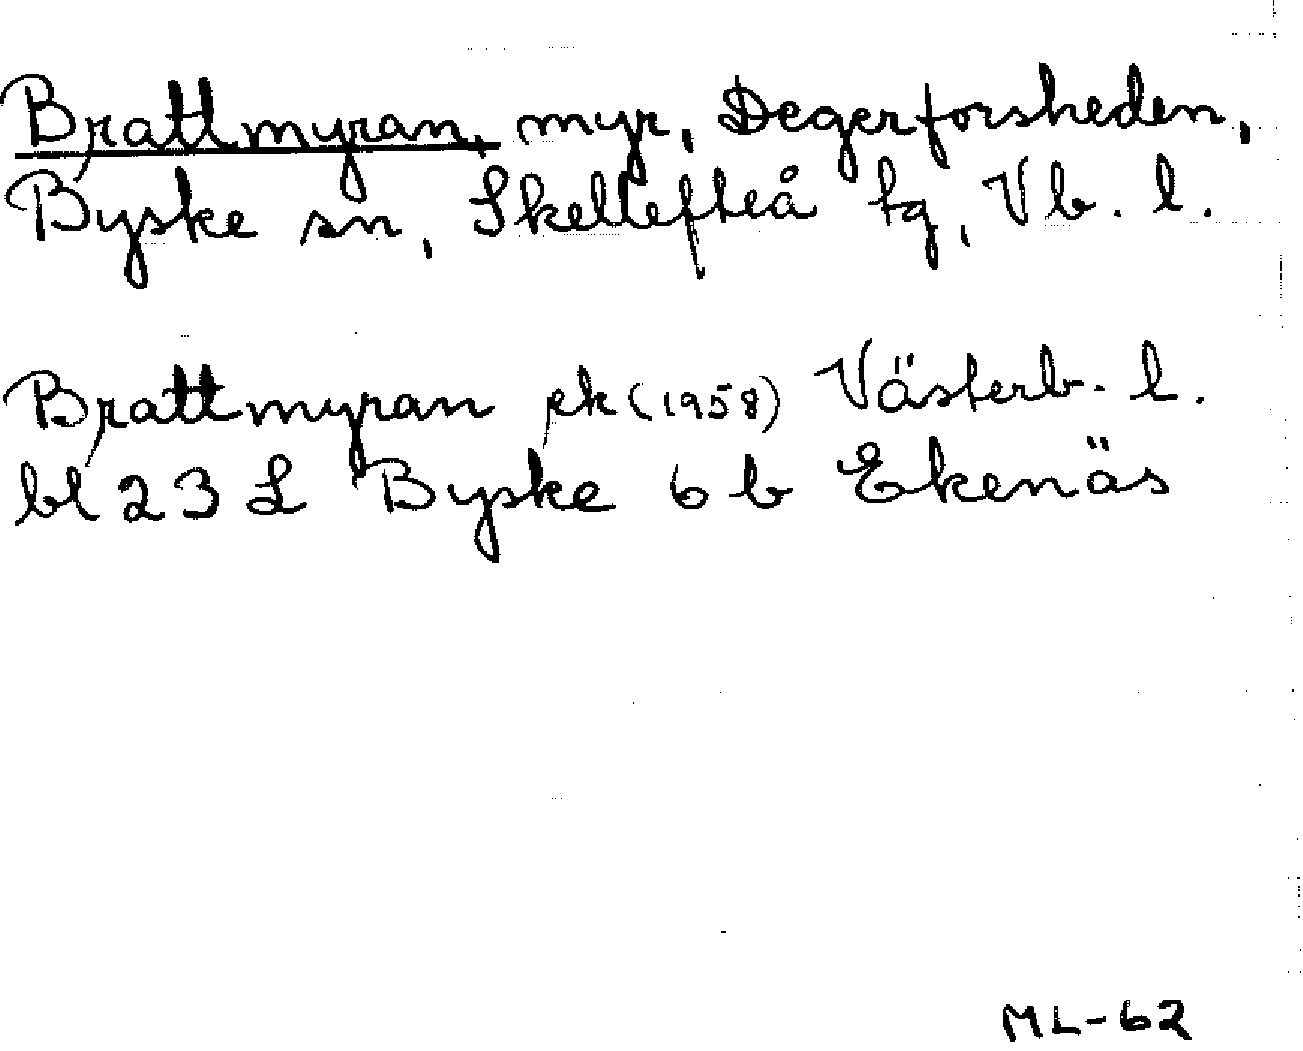 Brattmyran, myr, Degerforsheden,
Byske sn, Skellefteå tg, Vb. l.
Brattmyran ek (1958) Västerb. l.
bl 23 L Byske 6 b Ekenäs
ML-62